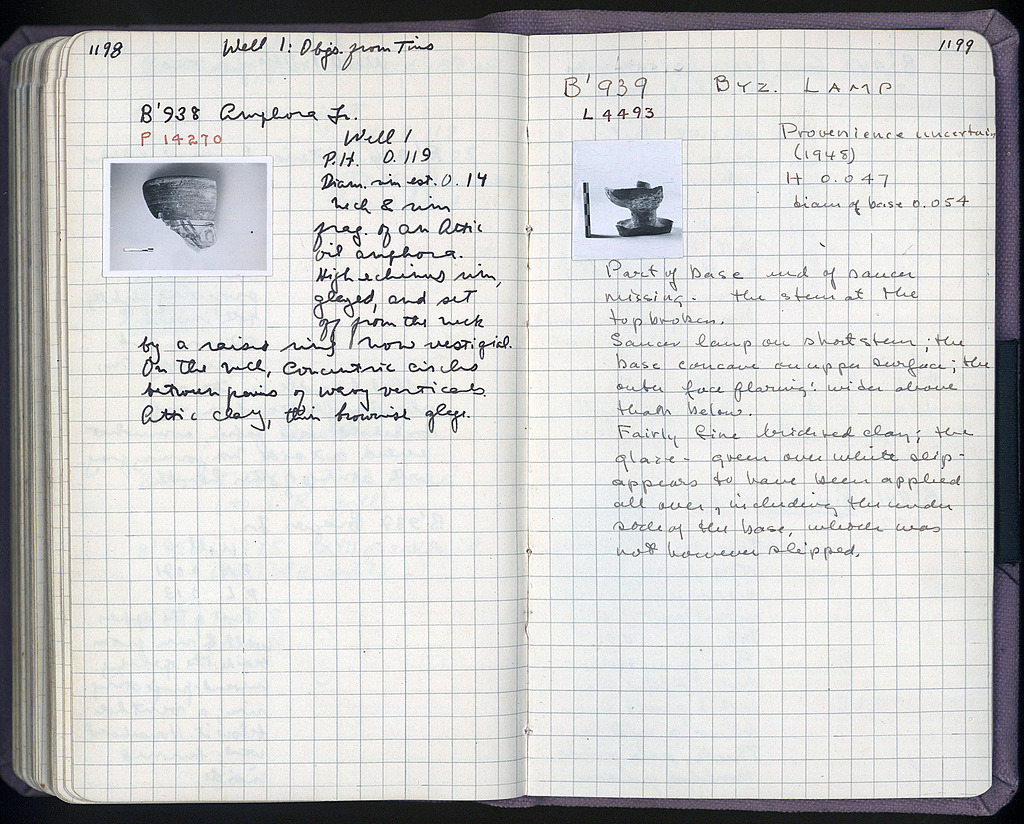 1198
Well 1: Objs. from Tins
B'938 Amphora Fr.
P 14270
Well 1
P.H. 0.119
Diam. rim est. 0.14
Neck & rim
frag. of an Attic
oil amphora.
High echinus rim,
glazed, and set
off from the neck
by a raised ring now vestigial.
On the neck, concentric circles
between pairs of wavy verticals.
Attic clay, thin brownish glaze.
1199
B'939 BYZ. LAMP
L 4493
Provenience uncertain
(1948)
H 0.047
diam of base 0.054
Part of base and of saucer
missing. the stem at the
top broken.
Saucer lamp on short stem; the
base concave on upper surface; the
outer face flaring: wider above
than below.
Fairly fine brick red clay; the
glaze - green over white slip -
appears to have been applied
all over, including the under
side of the base, which was
not however slipped.